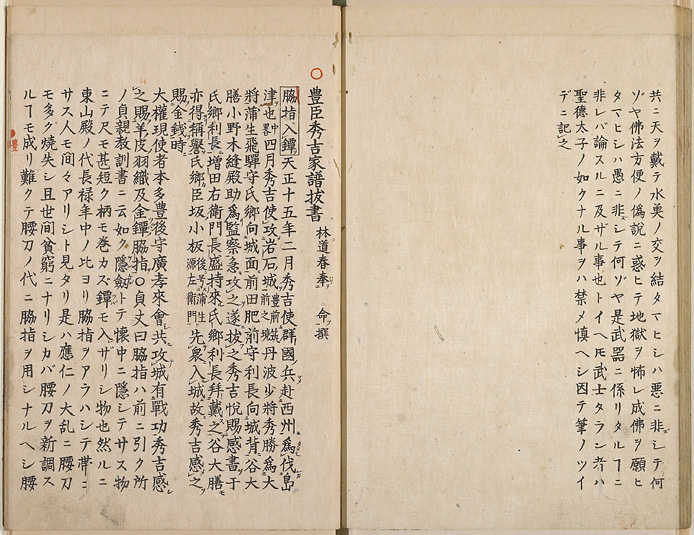 共ニ天ヲ戴テ水奧ノ交ヲ結タマヒシハ悪ニ非シテ何
ゾヤ佛法方便ノ僞説ニ惑ヒテ地獄ヲ怖レ成佛ヲ願ヒ
タマヒシハ愚ニ非シテ何ゾヤ是武器ニ係リタルヿニ
非レバ論スルニ及ザル事也トイヘ𪜈武士タラン者ハ
聖德太子ノ如クナル事ヲハ禁メ愼ヘシ因テ筆ノツイ
デニ記之
豊臣秀吉家譜拔書 林道春奉 命撰
脇指入鐔天正十五年二月秀吉使群國兵赴西州爲伐島
津也中畧四月秀吉使攻岩石城豊前筑前之境丹波少將秀勝爲大
將蒲生飛驒守氏郷向城面前田肥前守利長向城背谷大
膳小野木縫殿助爲監察急攻之遂拔之秀吉悅賜感書于
氏郷利長増田右衛門長盛持來氏郷利長拜戴之谷大膳
亦得稱譽氏郷臣坂小板後号蒲生源左衛門先衆入城故秀吉感之
賜金錢時
大權現使者本多豊後守廣孝來會共攻城有戰功秀吉感
之賜羊皮羽織及金鐔脇指〇貞丈曰脇指ハ前ニ引ク所
ノ貞親教訓書ニ云如ク隱劔トテ懷中ニ隱シテサス物
ニテ尺モ甚短ク柄モ巻カズ鐔モ入ザリシ物也然ルニ
東山殿ノ代長禄年中ノ比ヨリ脇指ヲアラハシテ帶ニ
サス人モ間々アリシト見タリ是ハ應仁ノ大乱ニ腰刀
モ多グ燒失シ且世間貧窮ニナリシカバ腰刀ヲ新調ス
ルヿモ成リ難クテ腰刀ノ代ニ脇指ヲ用シナルヘシ腰